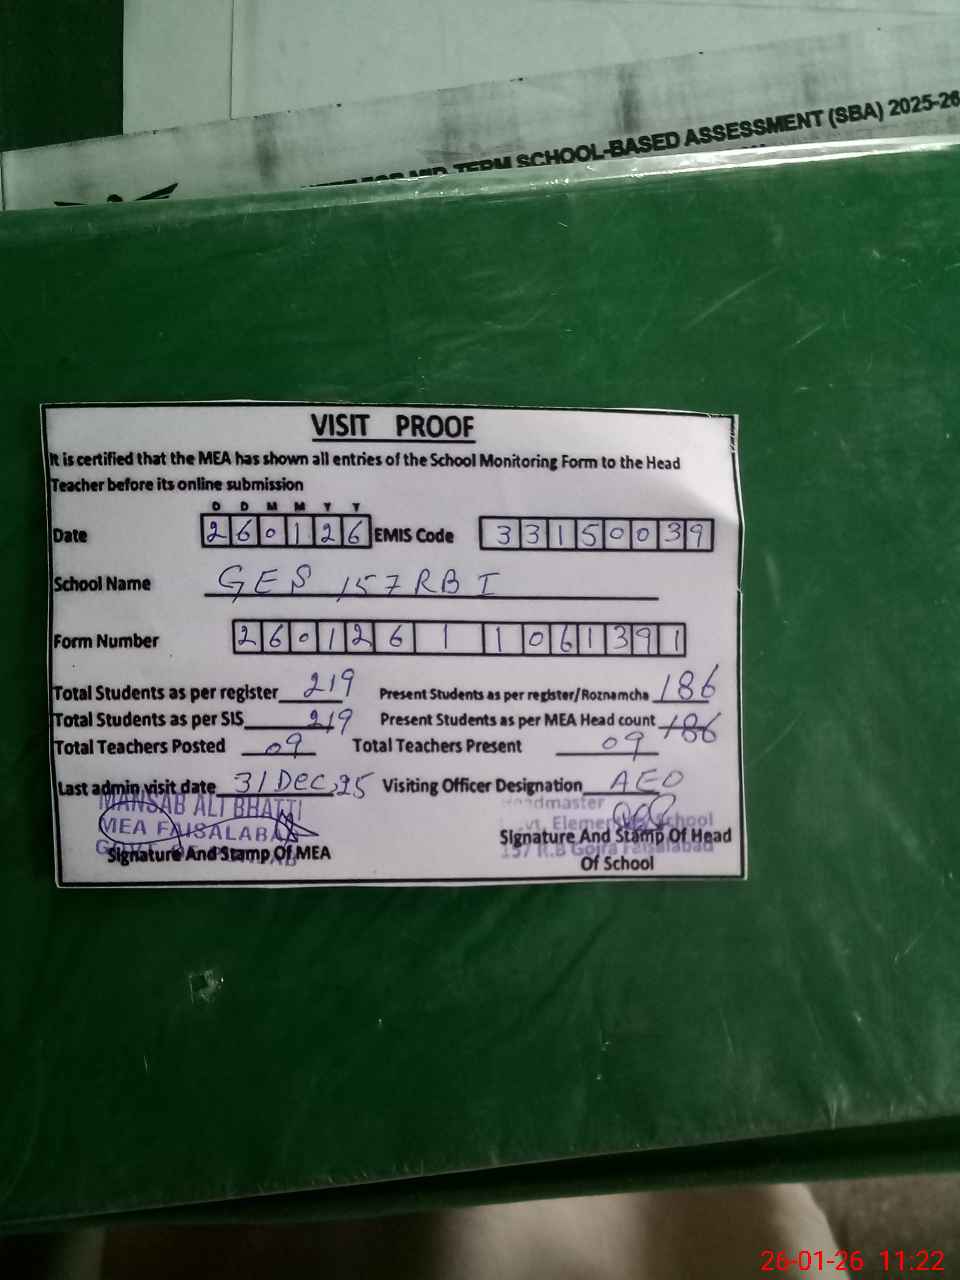 TERM SCHOOL-BASED ASSESSMENT (SBA) 2025-26
VISIT PROOF
It is certified that the MEA has shown all entries of the School Monitoring Form to the Head
Teacher before its online submission
D D M M Y Y
Date 260126 EMIS Code 33150039
School Name GES 157 RB I
Form Number 260126 1 1061391
Total Students as per register 219 Present Students as per register/Roznamcha 186
Total Students as per SIS 219 Present Students as per MEA Head count 186
Total Teachers Posted 09 Total Teachers Present 09
Last admin visit date 31 Dec, 25 Visiting Officer Designation AEO
MANSAB ALI BHATTI
MEA FAISALABAD
Signature And Stamp Of MEA
Headmaster
Govt. Elementary School
Signature And Stamp Of Head
157 R.B Gojra Faisalabad
Of School
26-01-26 11:22